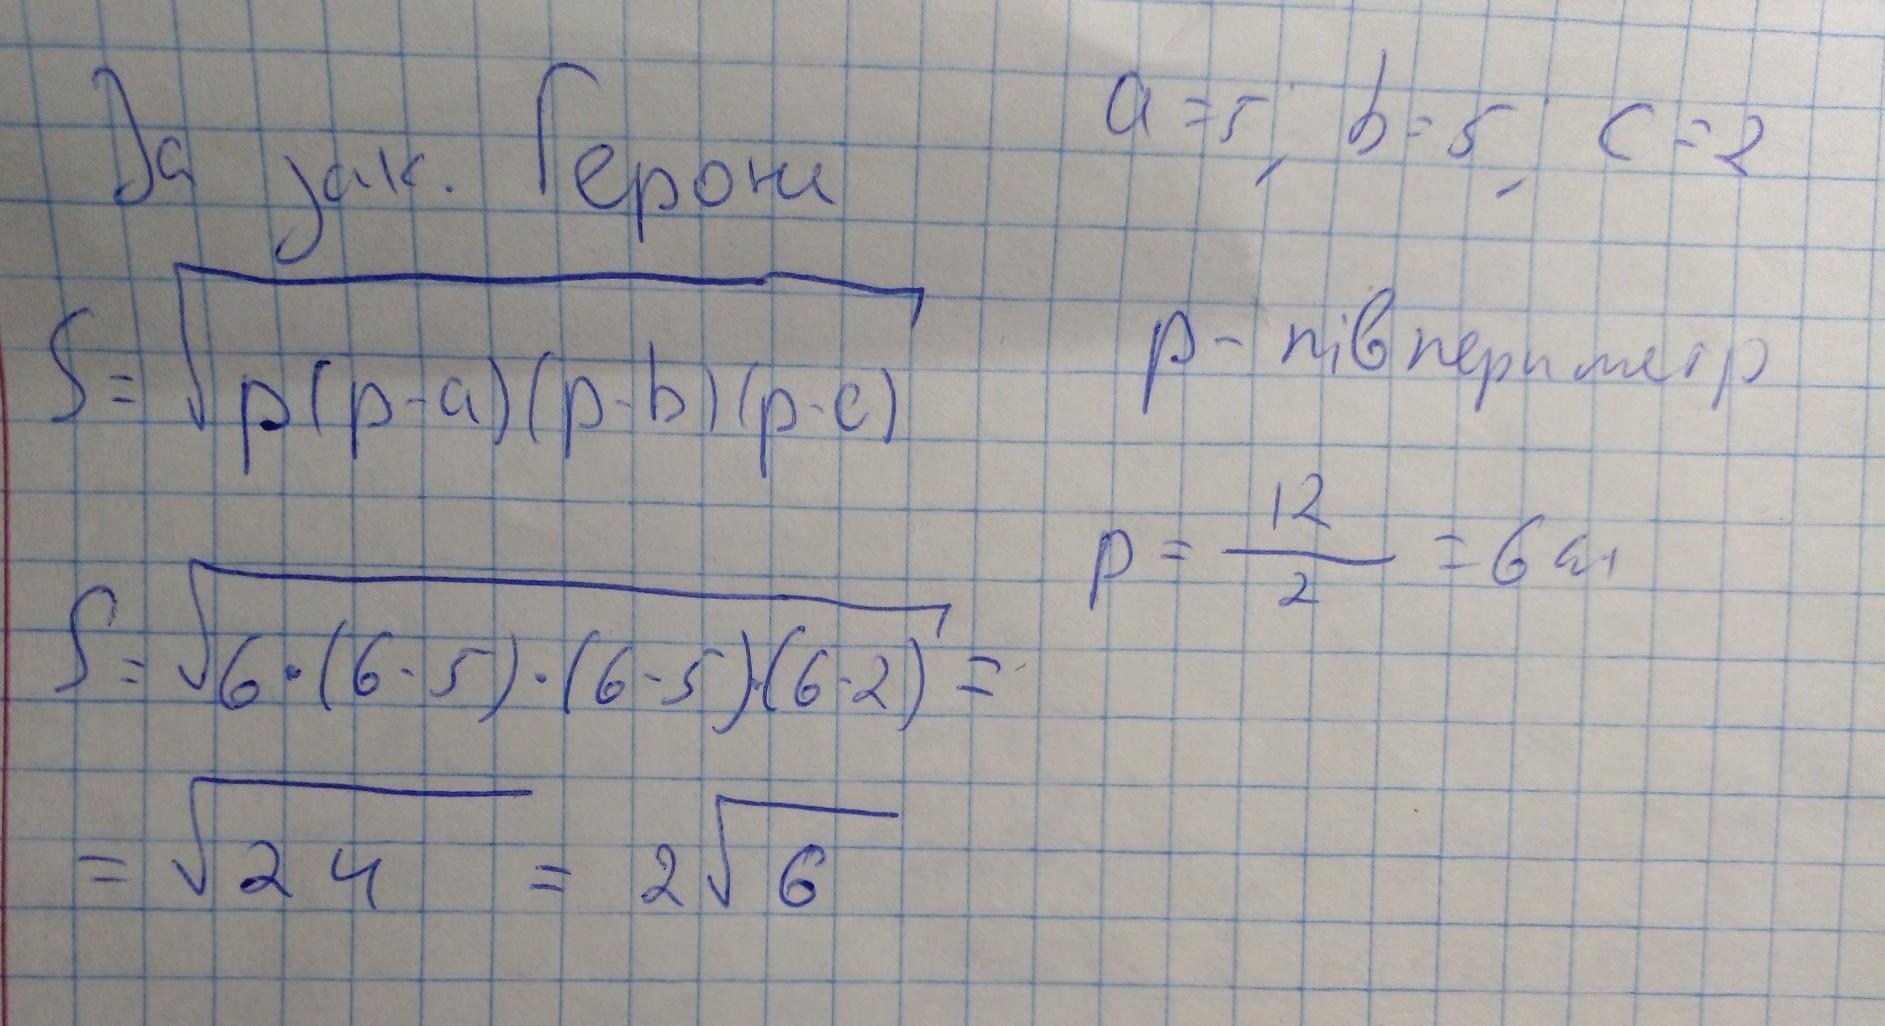 За зак. Герона
a = 5, b = 5, c = 2
S = √p(p-a)(p-b)(p-c)
p - півпериметр
p = 12/2 = 6 см
S = √6·(6-5)·(6-5)·(6-2) =
= √24 = 2√6